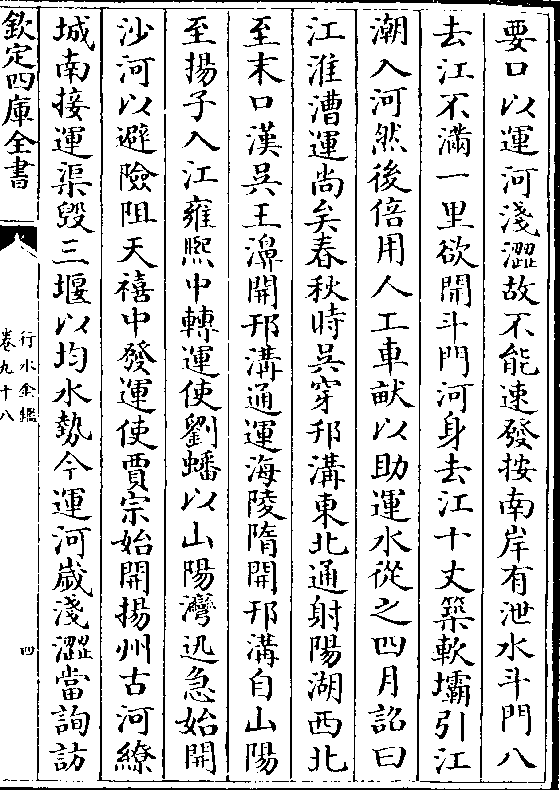 要口以運河淺澀故不能速發按南岸有泄水斗門八
去江不滿一里欲開斗門河身去江十丈築軟壩引江
潮入河然後倍用人工車畎以助運水從之四月詔曰
江淮漕運尚矣春秋時吳穿邗溝東北通射陽湖西北
至末口漢吳王濞開邗溝通運海陵隋開邗溝自山陽
至揚子入江雍熙中轉運使劉蟠以山陽灣迅急始開
沙河以避險阻天禧中發運使賈宗始開揚州古河繚
城南接運渠毀三堰以均水勢今運河歲淺澀當詢訪
欽定四庫全書
行水金鑑
卷九十八
四